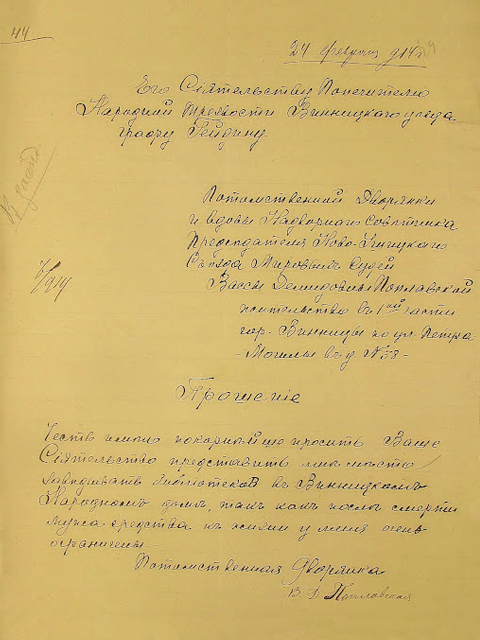 44
24 февраля 914 г.
Его Сіятельству Попечителю
Народной Трезвости Винницкаго уезда
графу Гейдину
Потомственной Дворянки
и вдовы Надворнаго Советника
Председателя Ново-Ушицкаго
Съезда Мировыхъ Судей
Вассы Демидовны Поплавской
жительство въ 1ой части
гор. Винницы по ул. Петра
Могилы въ д. № 38-
Прошеніе
Честь имею покорнейше просить Ваше
Сіятельство представить мне место
заведывать библіотекой въ Винницкомъ
Народномъ доме, такъ какъ после смерти
мужа средства къ жизни у меня очень
ограничены.
Потомственная Дворянка
В. Д. Поплавская